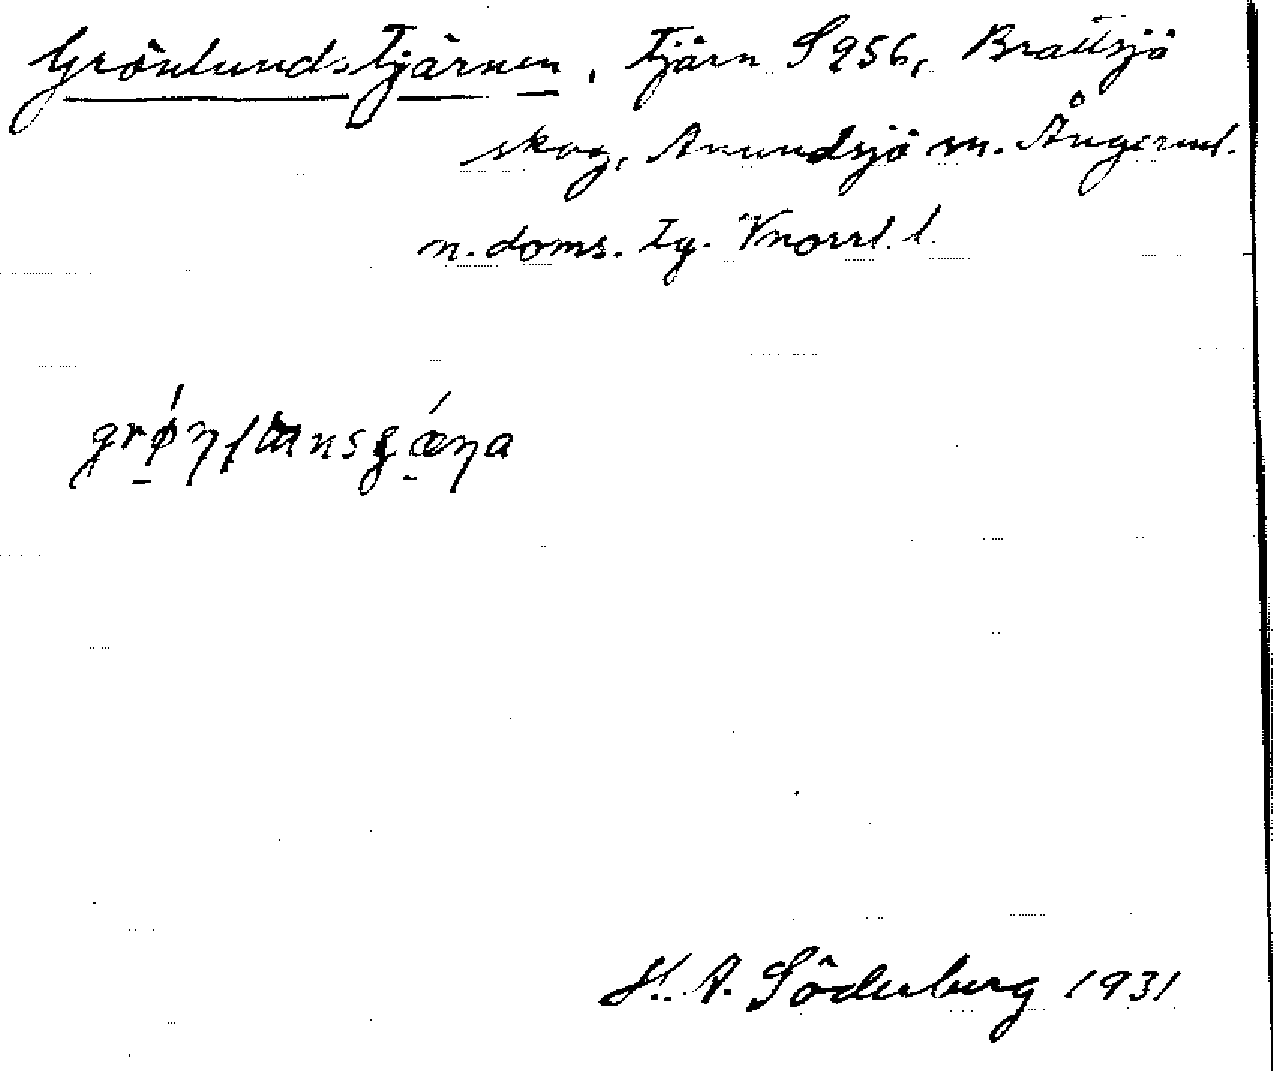 Grönlundstjärnen, Tjärn S 956, Brattsjö
skog, Anundsjö sn. Ångerml.
n. doms. Tg. Vnorrl. l.
K. A. Söderberg 1931